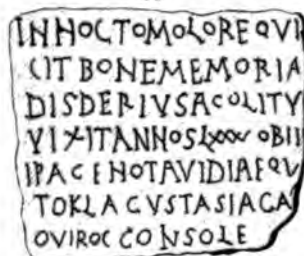 INHOCTOMOLOREQVI
CITBONEMEMORIA
DISDERIVSACOLITV
VIXITANNOSLXXXV OBII
IPACENOTAVIDIAEQV
TOKLACVSTASIACA
OVIROCCONSOLE